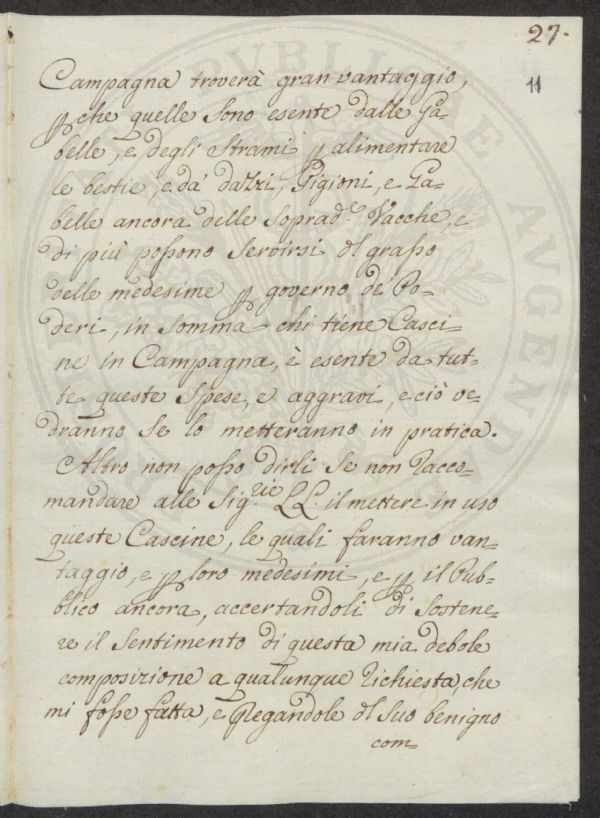 27.
11
Campagna troverà gran vantaggio,
p che quelle sono esente dalle Ga-
belle, e degli strami p alimentare
le bestie, e da dazzi, Pigioni, e Ga-
belle ancora delle soprad.e Vacche, e
di più possono servirsi dl grasso
delle medesime p governo de Po-
deri, in somma chi tiene Casci-
ne in Campagna, è esente da tut-
te queste spese, e aggravi, e ciò ve-
dranno se lo metteranno in pratica.
Altro non posso dirli se non racco-
mandare alle Sig.rie LL. il mettere in uso
queste Cascine, le quali faranno van-
taggio, e p loro medesimi, e p il Pub-
blico ancora, accertandoli di sostene-
re il sentimento di questa mia debole
composizione a qualunque richiesta, che
mi fosse fatta, e Pregandole dl suo benigno
com-
PUBLICAE AUGENDAE